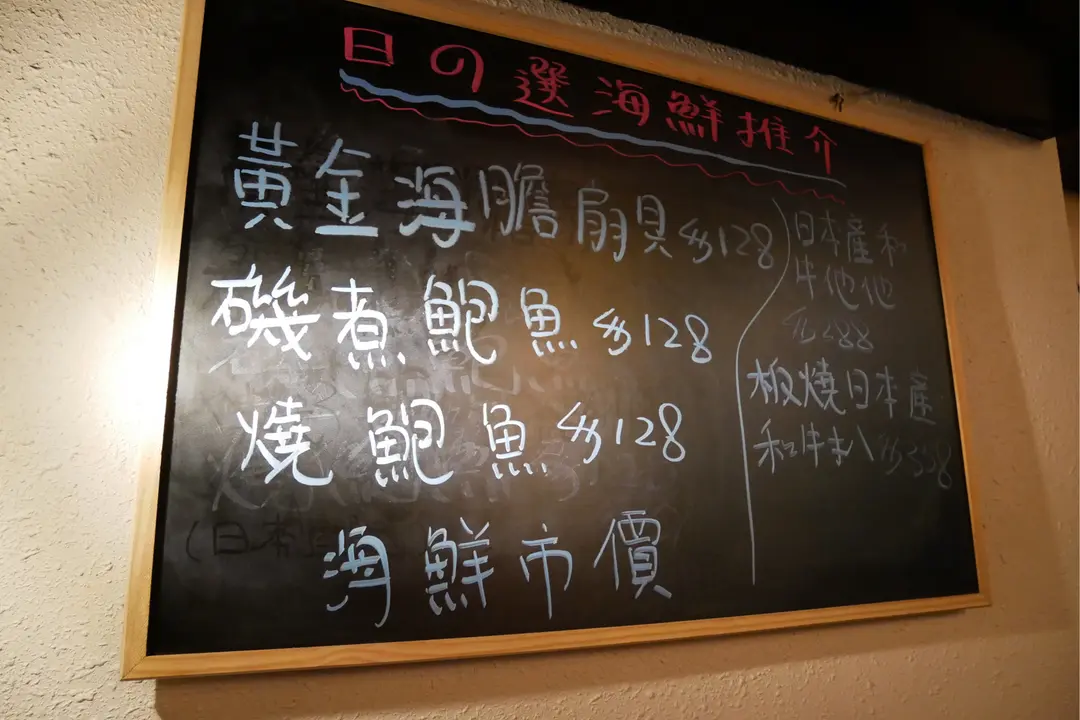 日の選海鮮推介
黃金海膽扇貝$128
磯煮鮑魚$128
燒鮑魚$128
海鮮市價
日本産和
牛他他
$288
板燒日本産
和牛扒